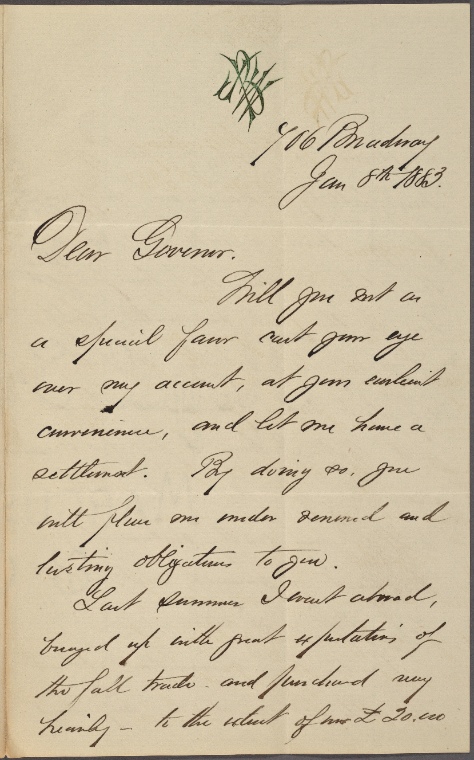 706 Broadway
Jan 8th 1883.
Dear Govenor.
Will you not as
a special favor cast your eye
over my account, at your earliest
convenience, and let me have a
settlement. By doing so, you
will place me under renewed and
lasting obligations to you.
Last summer I went abroad,
buoyed up with great expectations of
the fall trade - and purchased very
heavily - to the extent of over £ 20.000